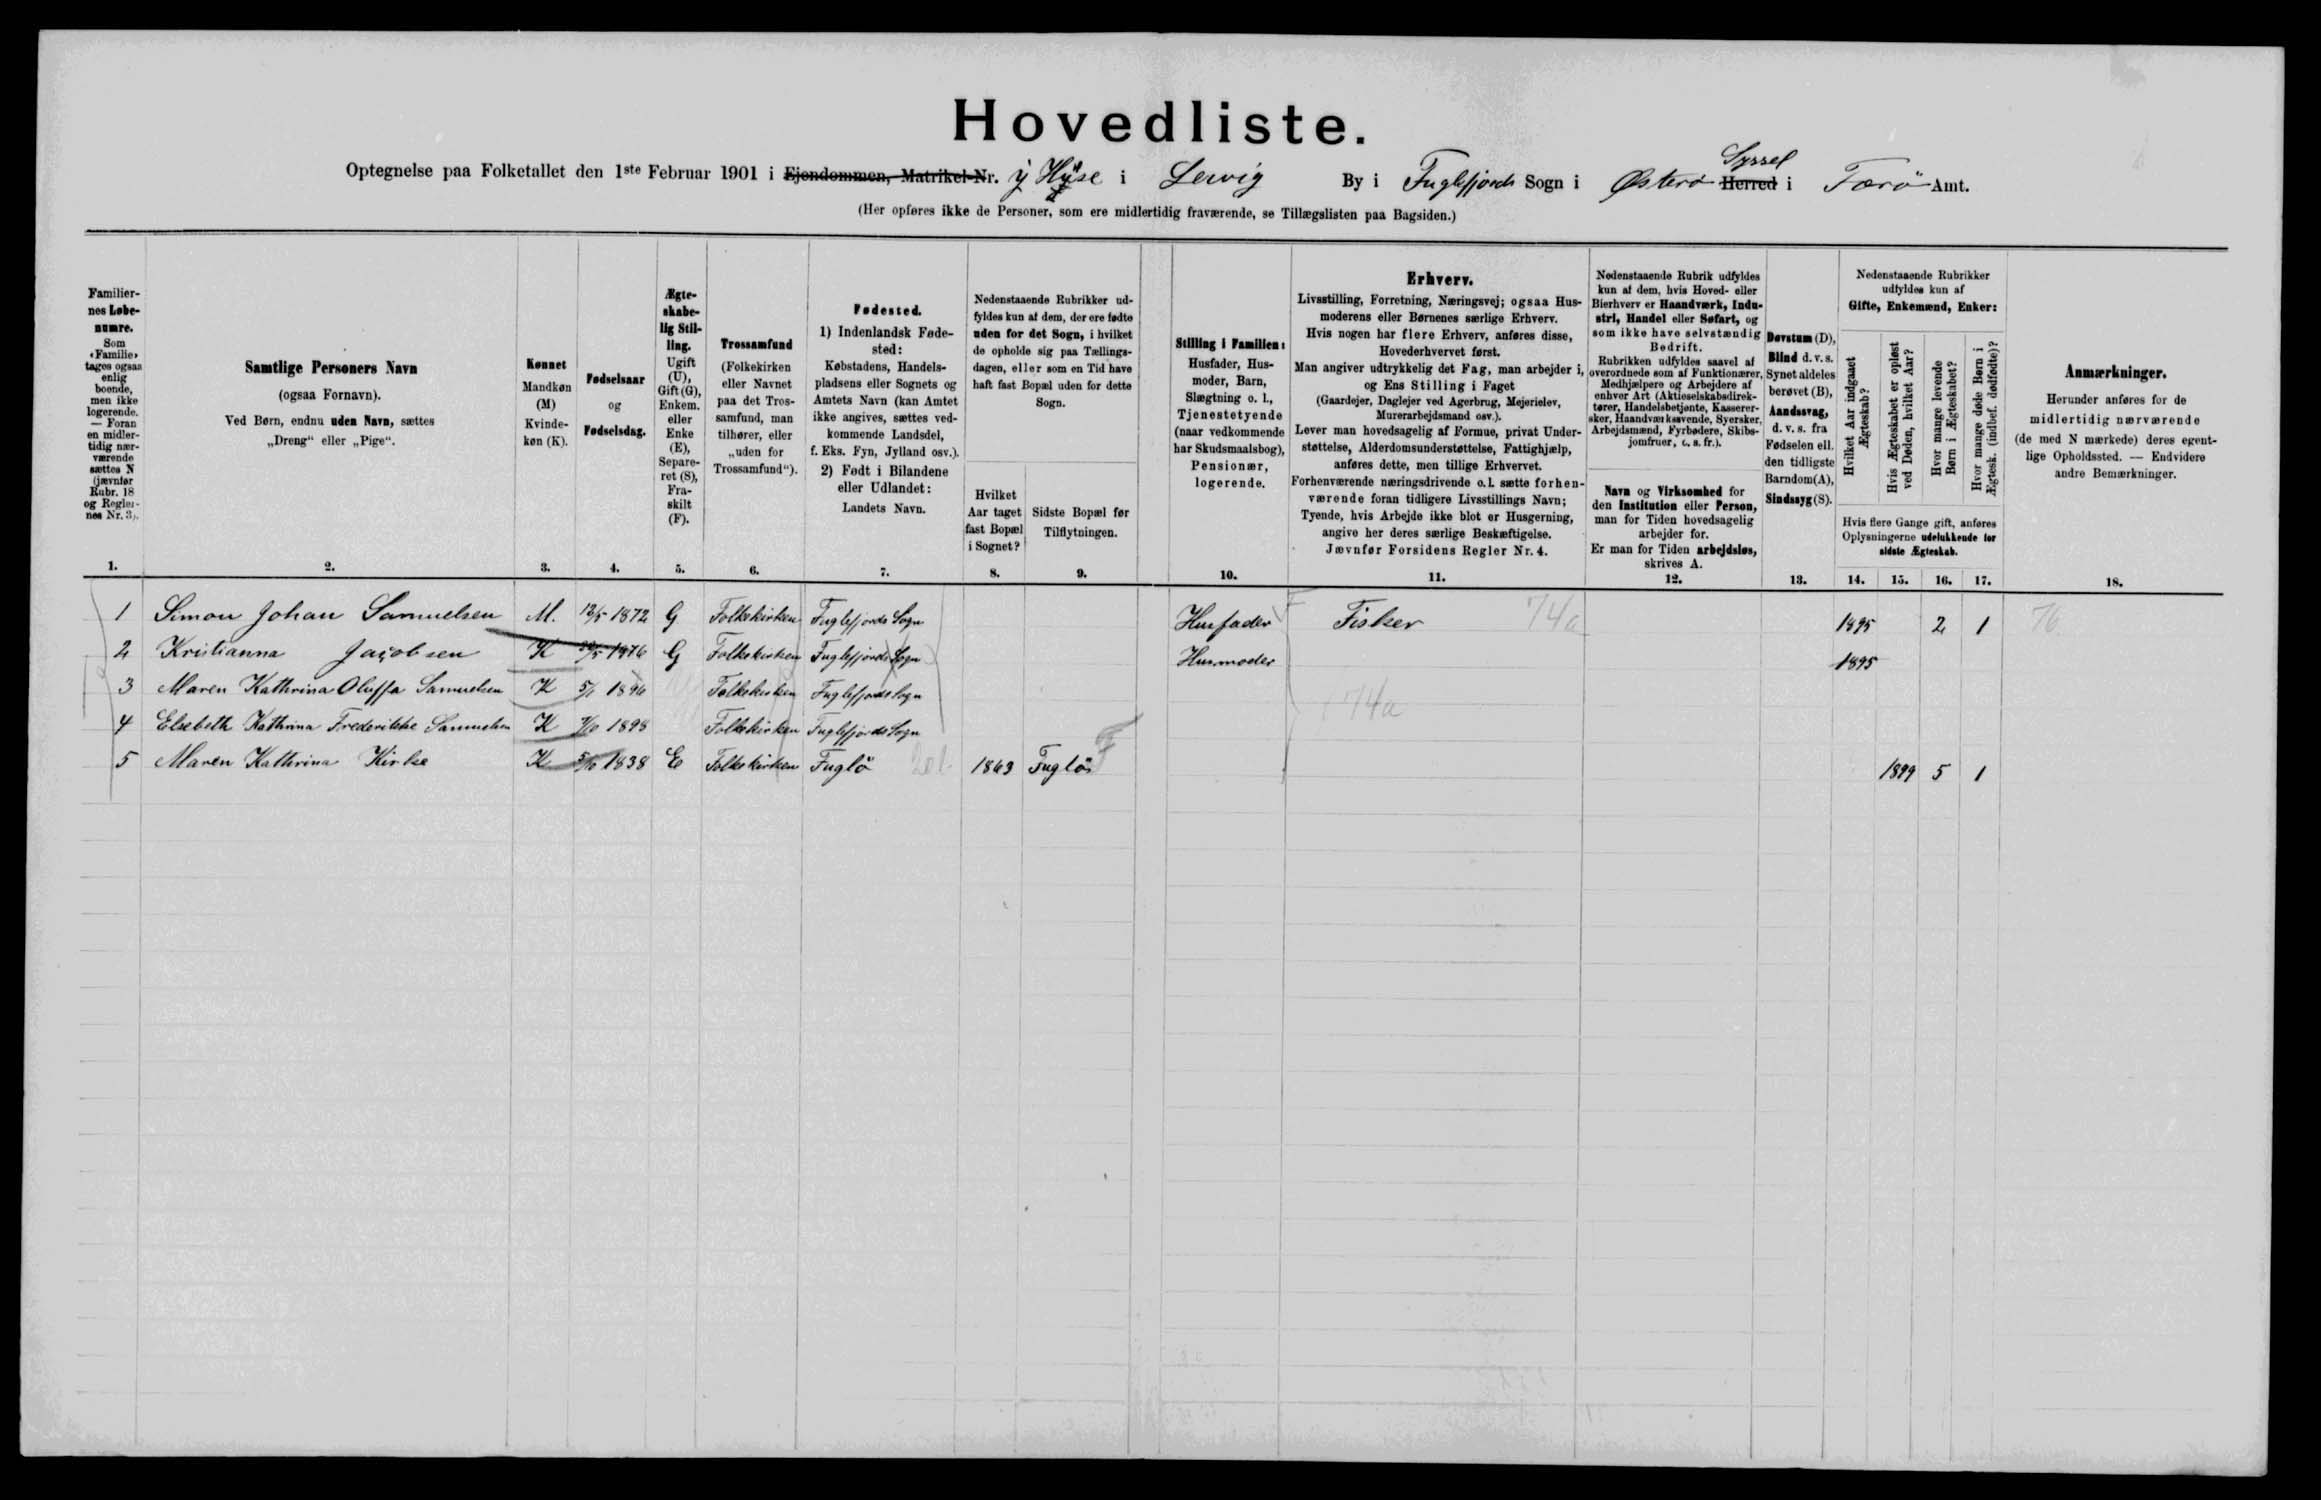 Hovedliste.
Optegnelse paa Folketallet den 1ste Februar 1901 i Ejendommen, Matrikel-Nr. ij Hüse i Lervig By i Fuglefjords Sogn i Østerø Syssel Herred i Færö Amt.
(Her opføres ikke de Personer, som ere midlertidig fraværende, se Tillægslisten paa Bagsiden.)
Familier-
nes Løbe-
numre.
Som
«Familie»
tages ogsaa
enlig
boende,
men ikke
logerende.
— Foran
en midler-
tidig nær-
værende
sættes N
(jævnfør
Rubr. 18
og Regler-
nes Nr. 3).
1.
Samtlige Personers Navn
(ogsaa Fornavn).
Ved Børn, endnu uden Navn, sættes
„Dreng“ eller „Pige“.
2.
Kønnet
Mandkøn
(M)
Kvinde-
køn (K).
3.
Fødselsaar
og
Fødselsdag.
4.
Ægte-
skabe-
lig Stil-
ling.
Ugift
(U),
Gift (G),
Enkem.
eller
Enke
(E),
Separe-
ret (S),
Fra-
skilt
(F).
5.
Trossamfund
(Folkekirken
eller Navnet
paa det Tros-
samfund, man
tilhører, eller
„uden for
Trossamfund“).
6.
Fødested.
1) Indenlandsk Føde-
sted:
Købstadens, Handels-
pladsens eller Sognets og
Amtets Navn (kan Amtet
ikke angives, sættes ved-
kommende Landsdel,
f. Eks. Fyn, Jylland osv.).
2) Født i Bilandene
eller Udlandet:
Landets Navn.
7.
Nedenstaaende Rubrikker ud-
fyldes kun af dem, der ere fødte
uden for det Sogn, i hvilket
de opholde sig paa Tællings-
dagen, eller som en Tid have
haft fast Bopæl uden for dette
Sogn.
Hvilket
Aar taget
fast Bopæl
i Sognet?
8.
Sidste Bopæl før
Tilflytningen.
9.
Stilling i Familien:
Husfader, Hus-
moder, Barn,
Slægtning o. l.,
Tjenestetyende
(naar vedkommende
har Skudsmaalsbog),
Pensionær,
logerende.
10.
Erhverv.
Livsstilling, Forretning, Næringsvej; ogsaa Hus-
moderens eller Børnenes særlige Erhverv.
Hvis nogen har flere Erhverv, anføres disse,
Hovederhvervet først.
Man angiver udtrykkelig det Fag, man arbejder i,
og Ens Stilling i Faget
(Gaardejer, Daglejer ved Agerbrug, Mejerielev,
Murerarbejdsmand osv.).
Lever man hovedsagelig af Formue, privat Under-
støttelse, Alderdomsunderstøttelse, Fattighjælp,
anføres dette, men tillige Erhvervet.
Forhenværende næringsdrivende o. l. sætte forhen-
værende foran tidligere Livsstillings Navn;
Tyende, hvis Arbejde ikke blot er Husgerning,
angive her deres særlige Beskæftigelse.
Jævnfør Forsidens Regler Nr. 4.
11.
Nedenstaaende Rubrik udfyldes
kun af dem, hvis Hoved- eller
Bierhverv er Haandværk, Indu-
stri, Handel eller Søfart, og
som ikke have selvstændig
Bedrift.
Rubrikken udfyldes saavel af
overordnede som af Funktionærer,
Medhjælpere og Arbejdere af
enhver Art (Aktieselskabsdirek-
tører, Handelsbetjente, Kasserer-
sker, Haandværkssvende, Syersker,
Arbejdsmænd, Fyrbødere, Skibs-
jomfruer, o. s. fr.).
Navn og Virksomhed for
den Institution eller Person,
man for Tiden hovedsagelig
arbejder for.
Er man for Tiden arbejdsløs,
skrives A.
12.
Døvstum (D),
Blind d. v. s.
Synet aldeles
berøvet (B),
Aandssvag,
d. v. s. fra
Fødselen ell.
den tidligste
Barndom (A),
Sindssyg (S).
13.
Nedenstaaende Rubrikker
udfyldes kun af
Gifte, Enkemænd, Enker:
Hvilket Aar indgaaet
Ægteskab?
Hvis Ægteskabet er opløst
ved Døden, hvilket Aar?
Hvor mange levende
Børn i Ægteskabet?
Hvor mange døde Børn i
Ægtesk. (indbef. dødfødte)?
Hvis flere Gange gift, anføres
Oplysningerne udelukkende for
sidste Ægteskab.
14. 15. 16. 17.
Anmærkninger.
Herunder anføres for de
midlertidig nærværende
(de med N mærkede) deres egent-
lige Opholdssted. — Endvidere
andre Bemærkninger.
18.
1 Simon Johan Samuelsen M. 12/5 1872 G Folkekirken Fuglefjords Sogn Husfader F Fisker 74a 1895 2 1 76
2 Kristianna Jacobsen K 1876 G Folkekirken Fuglefjords Sogn Husmoder 1895
3 Maren Kathrina Oluffa Samuelsen K 5/1 1896 Folkekirken Fuglefjords Sogn 74a
4 Elsebeth Kathrina Frederikke Samuelsen K 7/10 1898 Folkekirken Fuglefjords Sogn
5 Maren Kathrina Kirke K 5/10 1838 E Folkekirken Fuglö 1863 Fuglö F 1899 5 1